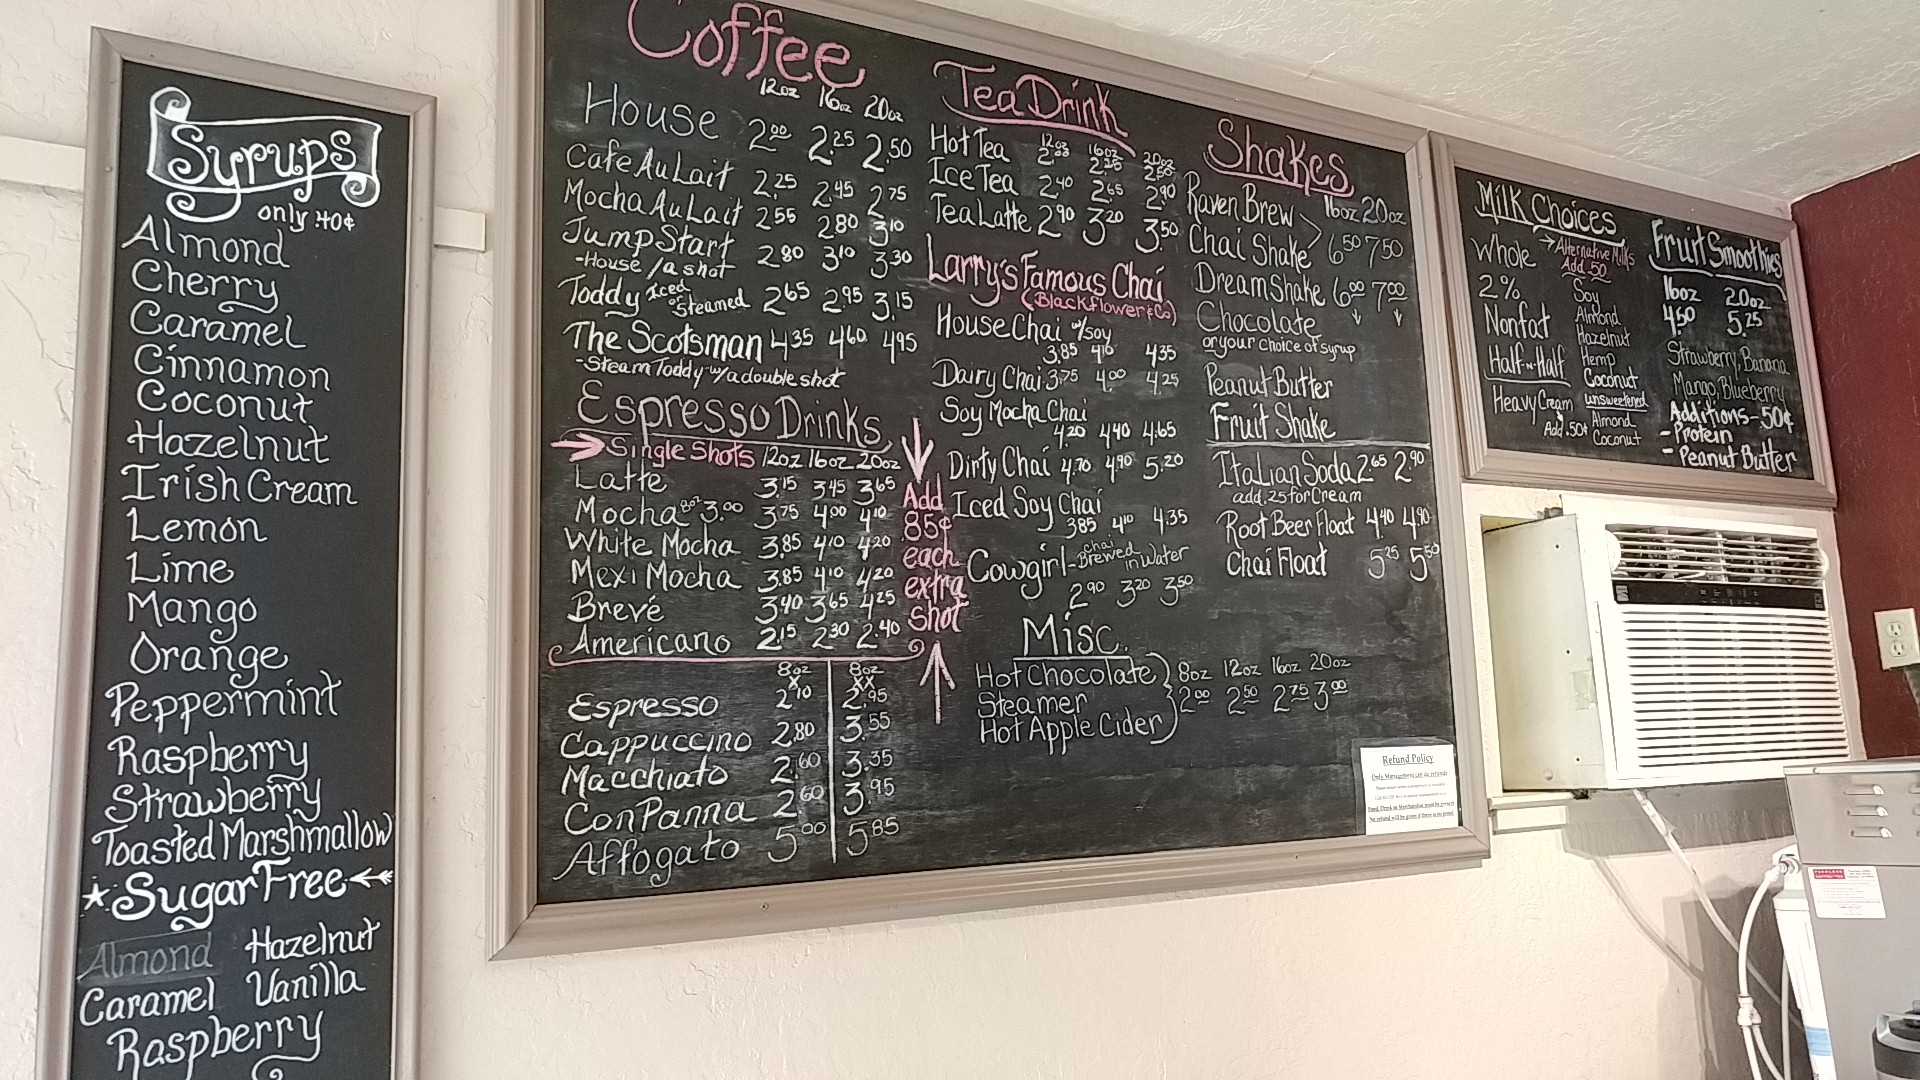 Syrups
only .40¢
Almond
Cherry
Caramel
Cinnamon
Coconut
Hazelnut
Irish Cream
Lemon
Lime
Mango
Orange
Peppermint
Raspberry
Strawberry
Toasted Marshmallow
Sugar Free
Almond Hazelnut
Caramel Vanilla
Raspberry
Coffee
12oz 16oz 20oz
House 2.00 2.25 2.50
Cafe Au Lait 2.25 2.45 2.75
Mocha Au Lait 2.55 2.80 3.10
Jump Start 2.80 3.10 3.30
-House /a shot
Toddy Iced or Steamed 2.65 2.95 3.15
The Scotsman 4.35 4.60 4.95
-Steam Toddy w/a double shot
Espresso Drinks
Single Shots 12oz 16oz 20oz
Latte 3.15 3.45 3.65
Mocha 8oz 3.00 3.75 4.00 4.10
White Mocha 3.85 4.10 4.20
Mexi Mocha 3.85 4.10 4.20
Brevé 3.40 3.65 4.25
Americano 2.15 2.30 2.40
Add
85¢
each
extra
shot
8oz 8oz
X XX
Espresso 2.10 2.95
Cappuccino 2.80 3.55
Macchiato 2.60 3.35
Con Panna 2.60 3.95
Affogato 5.00 5.85
Tea Drink
12oz 16oz 20oz
Hot Tea 2.00 2.25 2.50
Ice Tea 2.40 2.65 2.90
Tea Latte 2.90 3.20 3.50
Larry's Famous Chai
(Blackflower & Co)
House Chai w/soy
3.85 4.10 4.35
Dairy Chai 3.75 4.00 4.25
Soy Mocha Chai
4.20 4.40 4.65
Dirty Chai 4.70 4.90 5.20
Iced Soy Chai
3.85 4.10 4.35
Cowgirl - chai Brewed in Water
2.90 3.20 3.50
Misc.
8oz 12oz 16oz 20oz
Hot Chocolate
Steamer 2.00 2.50 2.75 3.00
Hot Apple Cider
Shakes
16oz 20oz
Raven Brew
Chai Shake 6.50 7.50
Dream Shake 6.00 7.00
Chocolate
or your choice of syrup
Peanut Butter
Fruit Shake
Italian Soda 2.65 2.90
add .25 for Cream
Root Beer Float 4.40 4.90
Chai Float 5.25 5.50
Refund Policy
Only Management can do refunds
Food, Drink or Merchandise must be present
No refund will be given if there is no proof
Milk Choices
Whole
2%
Nonfat
Half-n-Half
Heavy Cream
Add .50¢
Alternative Milks
Add .50
Soy
Almond
Hazelnut
Hemp
Coconut
unsweetened
Almond
Coconut
Fruit Smoothies
16oz 20oz
4.50 5.25
Strawberry, Banana
Mango, Blueberry
Additions - 50¢
- Protein
- Peanut Butter